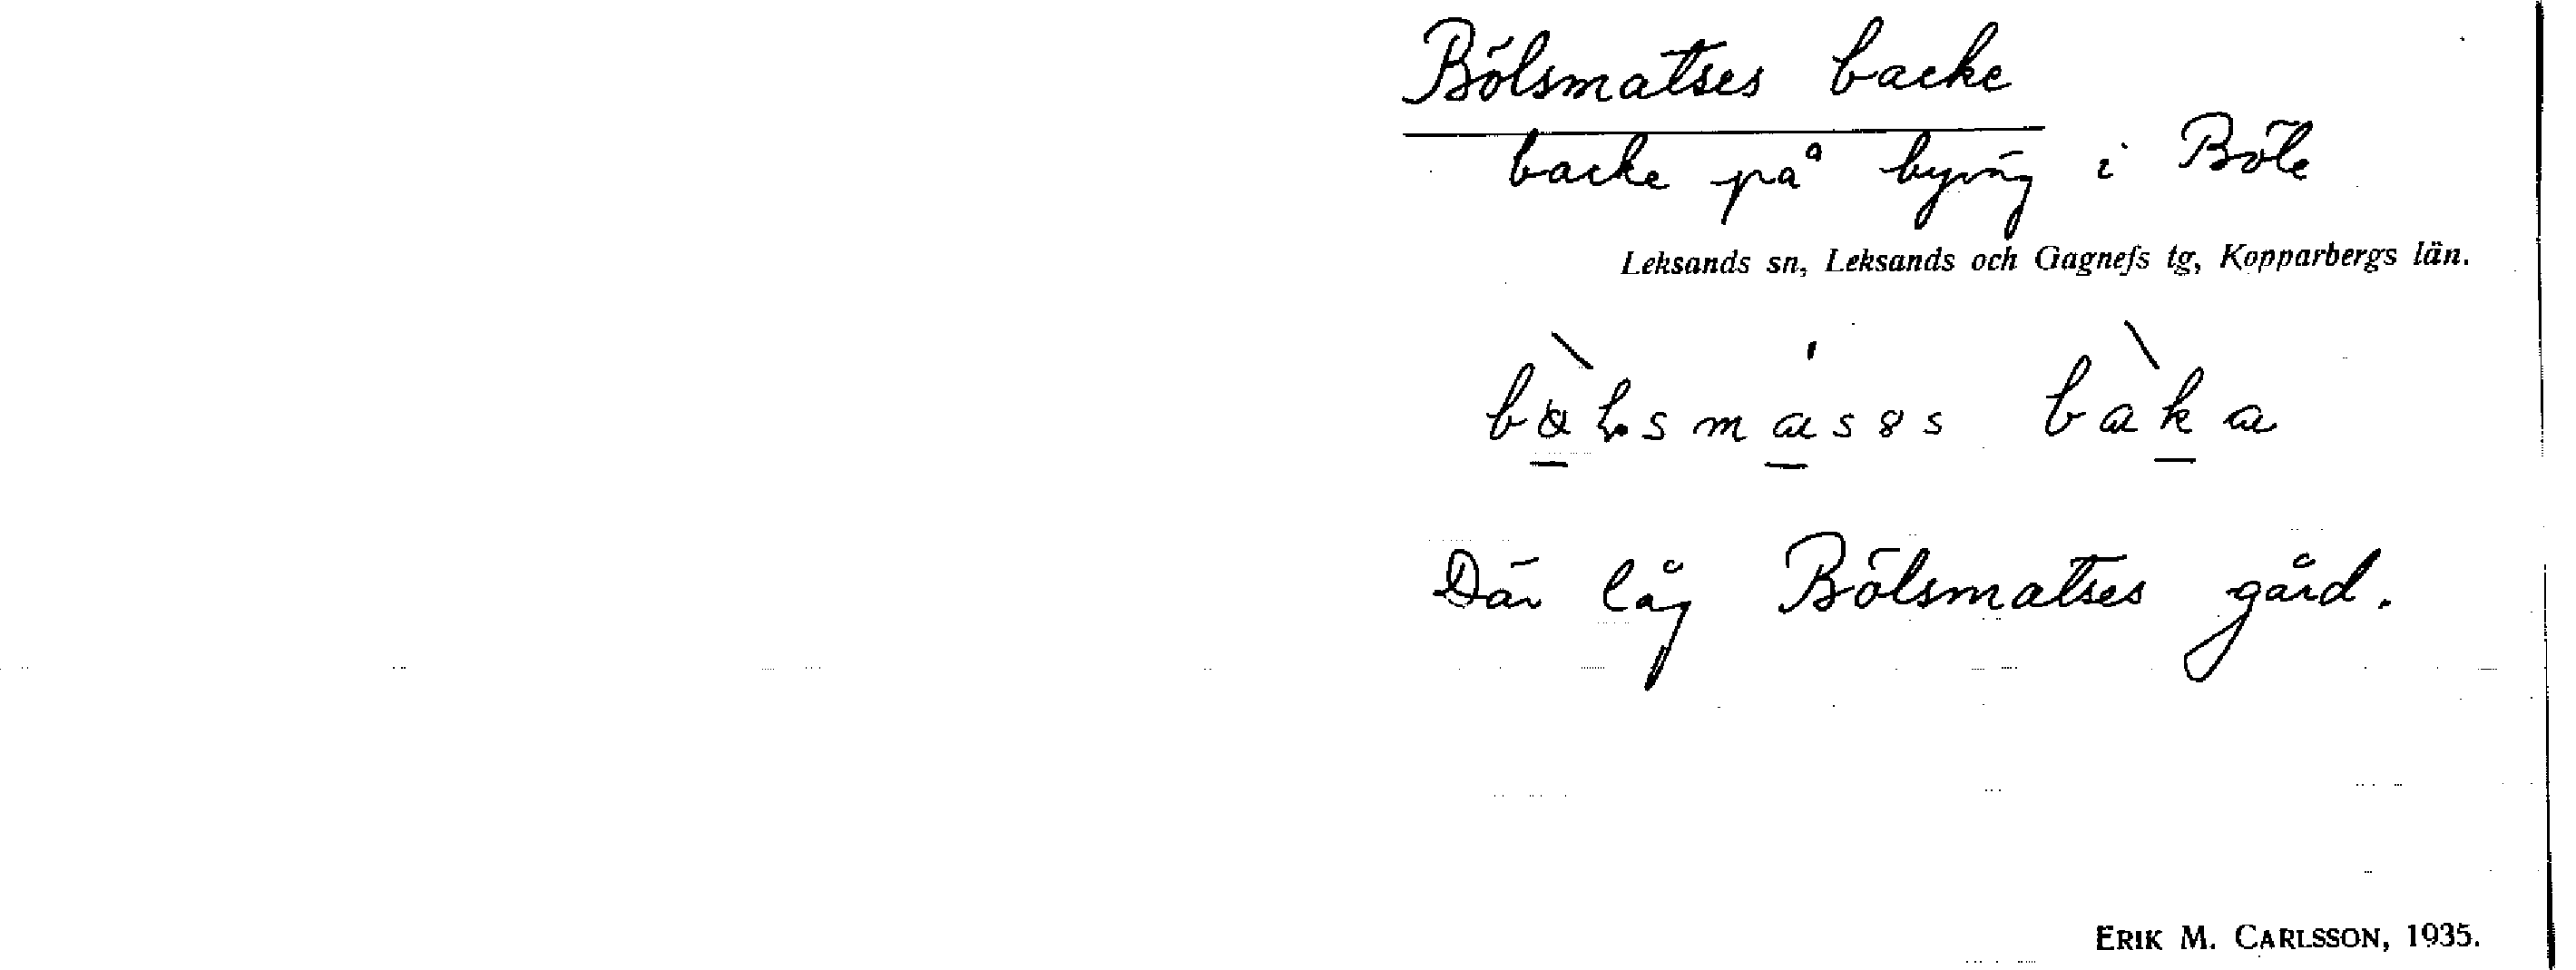 Bölsmatses backe
backe på byväg i Böle
Leksands sn, Leksands och Gagnefs tg, Kopparbergs län.
Där låg Bölsmatses gård.
ERIK M. CARLSSON, 1935.